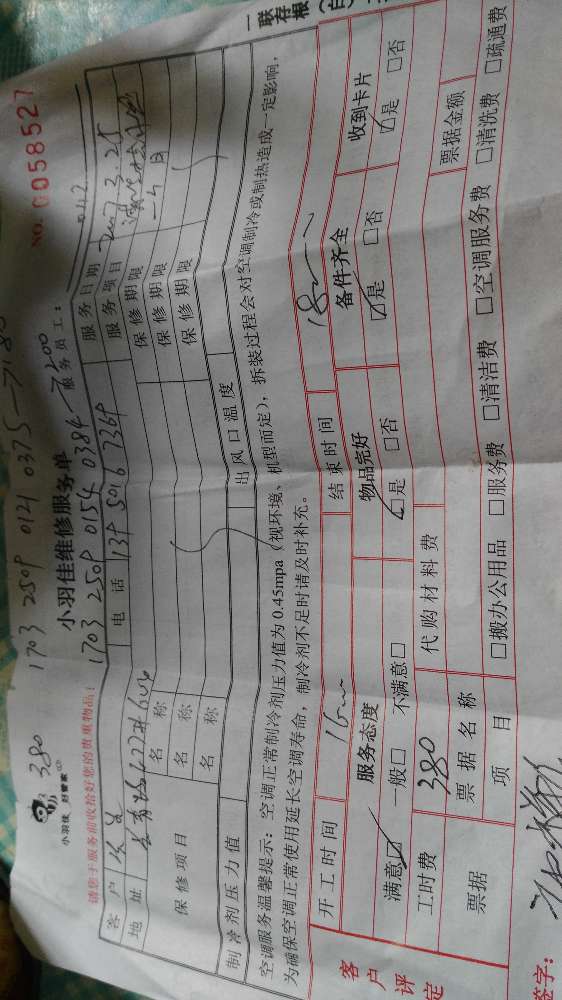 1703 2509 0121 0375
一联存根（白）
380
NO. 0058527
小羽佳 好管家
小羽佳维修服务单
请您于服务前收拾好您的贵重物品！
1703 2509 0154 0384
200
服务员工：
客户
电话
服务日期
地址
服务项目
保修项目
名称
保修期限
一个月
名称
保修期限
名称
保修期限
制冷剂压力值
出风口温度
空调服务温馨提示：空调正常制冷剂压力值为0.45mpa（视环境、机型而定），拆装过程会对空调制冷或制热造成一定影响，
为确保空调正常使用延长空调寿命，制冷剂不足时请及时补充。
客户评定
开工时间
结束时间
服务态度
物品完好
备件齐全
收到卡片
满意☑ 一般□ 不满意□
☑是 □否
☑是 □否
☑是 □否
工时费
380
代购材料费
票据
票据名称
票据金额
项目
□搬办公用品 □服务费 □清洁费 □空调服务费 □清洗费 □疏通费
签字：